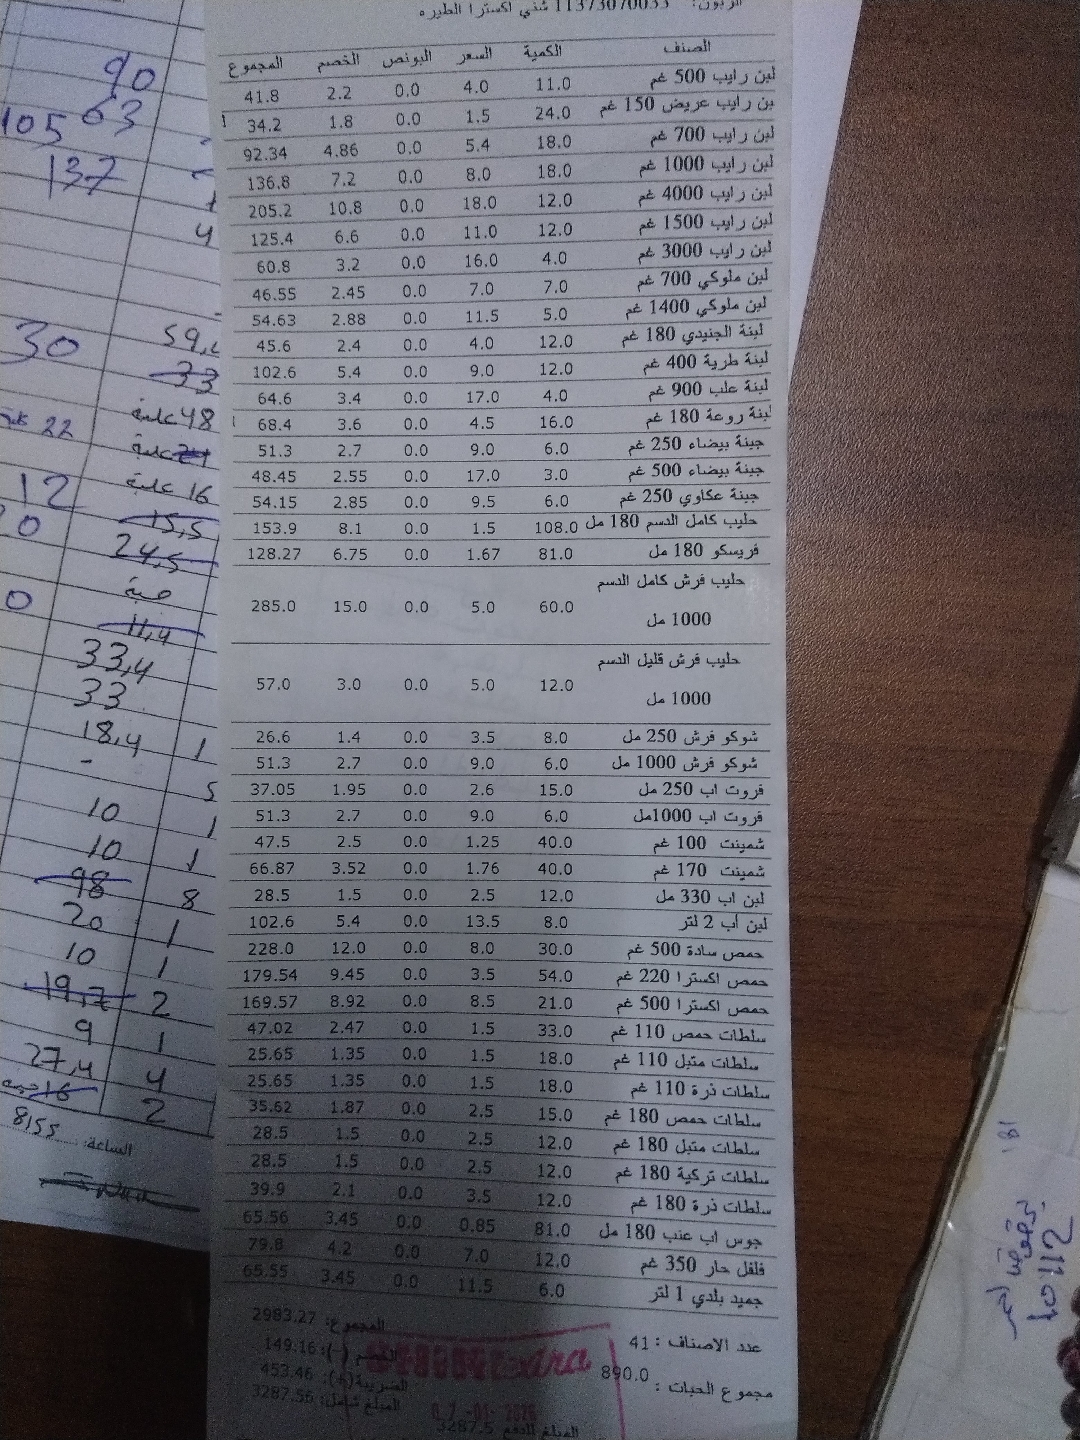 الزبون: 11373070033 شني اكسترا الطيره
الصنف الكمية السعر البونص الخصم المجموع
لبن رايب 500 غم 11.0 4.0 0.0 2.2 41.8
بن رايب عريض 150 غم 24.0 1.5 0.0 1.8 34.2
لبن رايب 700 غم 18.0 5.4 0.0 4.86 92.34
لبن رايب 1000 غم 18.0 8.0 0.0 7.2 136.8
لبن رايب 4000 غم 12.0 18.0 0.0 10.8 205.2
لبن رايب 1500 غم 12.0 11.0 0.0 6.6 125.4
لبن رايب 3000 غم 4.0 16.0 0.0 3.2 60.8
لبن ملوكي 700 غم 7.0 7.0 0.0 2.45 46.55
لبن ملوكي 1400 غم 5.0 11.5 0.0 2.88 54.63
لبنة الجنيدي 180 غم 12.0 4.0 0.0 2.4 45.6
لبنة طرية 400 غم 12.0 9.0 0.0 5.4 102.6
لبنة علب 900 غم 4.0 17.0 0.0 3.4 64.6
لبنة روعة 180 غم 16.0 4.5 0.0 3.6 68.4
جبنة بيضاء 250 غم 6.0 9.0 0.0 2.7 51.3
جبنة بيضاء 500 غم 3.0 17.0 0.0 2.55 48.45
جبنة عكاوي 250 غم 6.0 9.5 0.0 2.85 54.15
حليب كامل الدسم 180 مل 108.0 1.5 0.0 8.1 153.9
فريسكو 180 مل 81.0 1.67 0.0 6.75 128.27
حليب فرش كامل الدسم
1000 مل 60.0 5.0 0.0 15.0 285.0
حليب فرش قليل الدسم
1000 مل 12.0 5.0 0.0 3.0 57.0
شوكو فرش 250 مل 8.0 3.5 0.0 1.4 26.6
شوكو فرش 1000 مل 6.0 9.0 0.0 2.7 51.3
فروت اب 250 مل 15.0 2.6 0.0 1.95 37.05
فروت اب 1000مل 6.0 9.0 0.0 2.7 51.3
شمينت 100 غم 40.0 1.25 0.0 2.5 47.5
شمينت 170 غم 40.0 1.76 0.0 3.52 66.87
لبن اب 330 مل 12.0 2.5 0.0 1.5 28.5
لبن أب 2 لتر 8.0 13.5 0.0 5.4 102.6
حمص سادة 500 غم 30.0 8.0 0.0 12.0 228.0
حمص اكسترا 220 غم 54.0 3.5 0.0 9.45 179.54
حمص اكسترا 500 غم 21.0 8.5 0.0 8.92 169.57
سلطات حمص 110 غم 33.0 1.5 0.0 2.47 47.02
سلطات متبل 110 غم 18.0 1.5 0.0 1.35 25.65
سلطات ذرة 110 غم 18.0 1.5 0.0 1.35 25.65
سلطات حمص 180 غم 15.0 2.5 0.0 1.87 35.62
سلطات متبل 180 غم 12.0 2.5 0.0 1.5 28.5
سلطات تركية 180 غم 12.0 2.5 0.0 1.5 28.5
سلطات ذرة 180 غم 12.0 3.5 0.0 2.1 39.9
جوس اب عنب 180 مل 81.0 0.85 0.0 3.45 65.56
فلفل حار 350 غم 12.0 7.0 0.0 4.2 79.8
جميد بلدي 1 لتر 6.0 11.5 0.0 3.45 65.55
عدد الاصناف : 41
مجموع الحبات : 890.0
المجموع: 2983.27
الخصم (-): 149.16
الضريبة(+): 453.46
المبلغ شامل: 3287.56
المبلغ للدفع 3287.5
Extra
07 -01- 2026
90
63
105
137
4
30
33
48 علبة
22
علبة
16 علبة
12
15,5
24,5
حبة
0
11,4
33,4
33
18,4 1
-
5
10 1
10 1
98 8
20 1
10 1
19,7 2
9 1
27,4 4
16 حبة 2
الساعة: 8:55
181